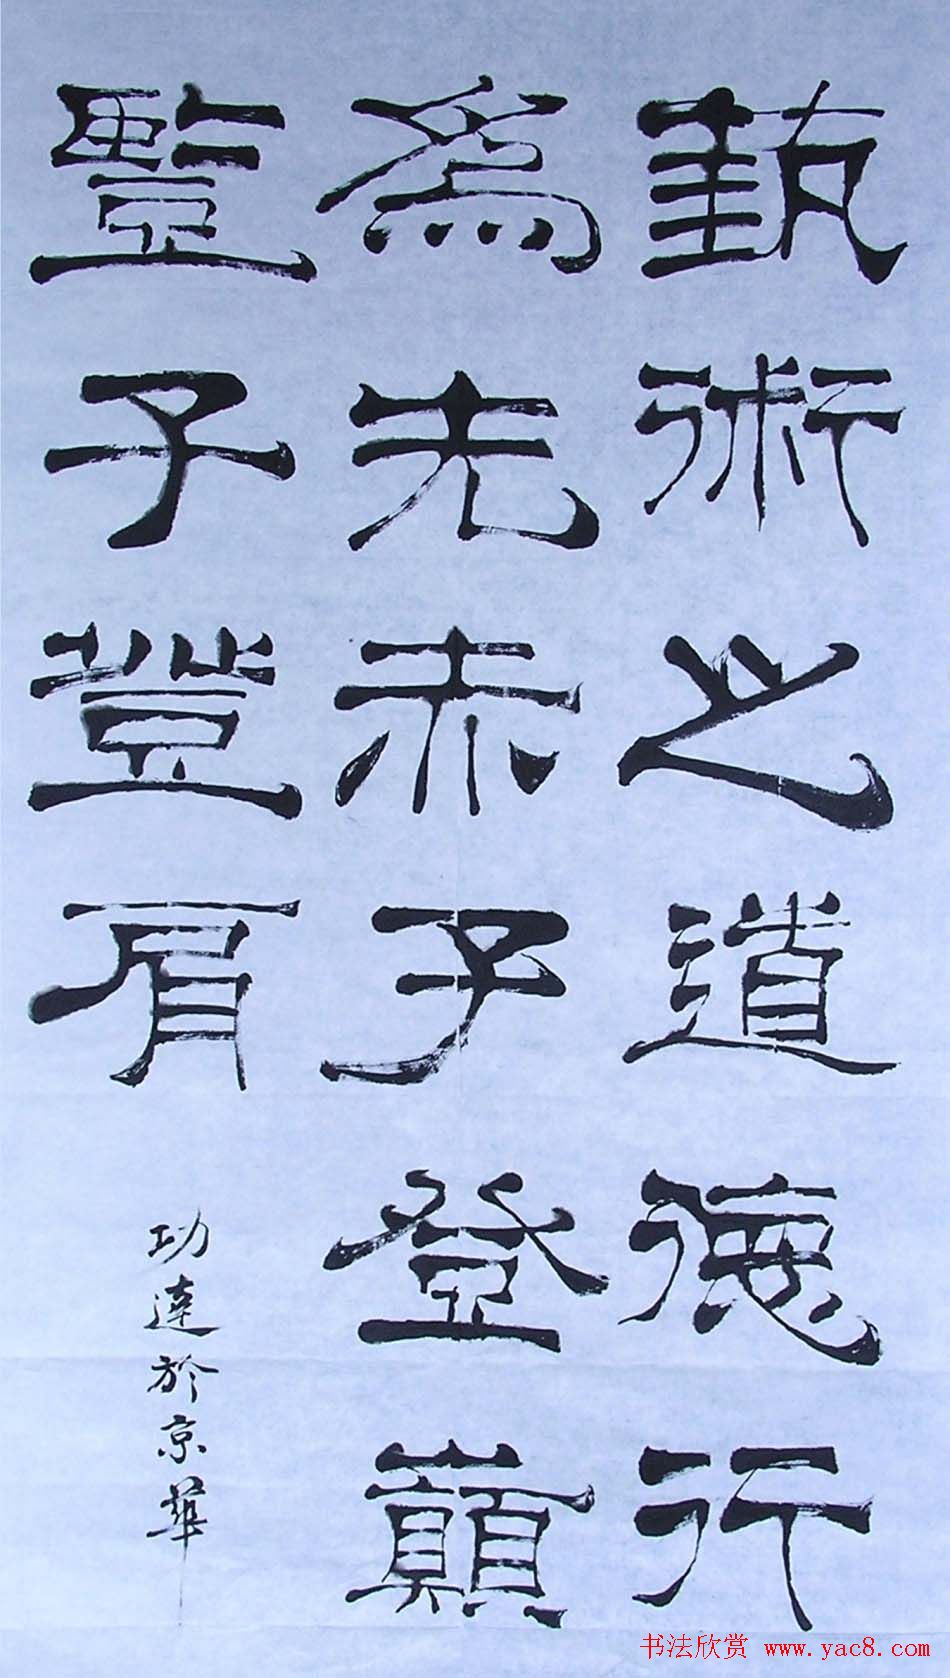 埶術之道德行
為先赤子登巔
豎子登肩
功達於京華
书法欣赏 www.yac8.com